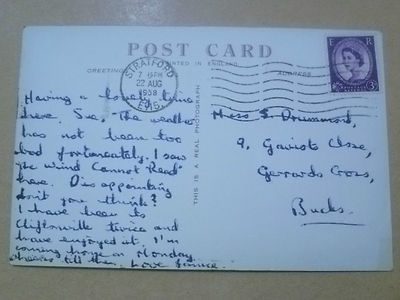 POST CARD
GREETINGS
PRINTED IN ENGLAND
ADDRESS
STRATFORD
7 15PM
22 AUG
1958
E15
E R
3D
THIS IS A REAL PHOTOGRAPH
Having a lovely time
here, Sue. The weather
has not been too
bad fortunately. I saw
"The Wind Cannot Read"
here. Disappointing
don't you think?
I have been to
Cliftonville twice and
have enjoyed it. I'm
coming home on Monday
cheers till then. Love
Miss S. Drummond,
9, Close,
Gerrards Cross,
Bucks.